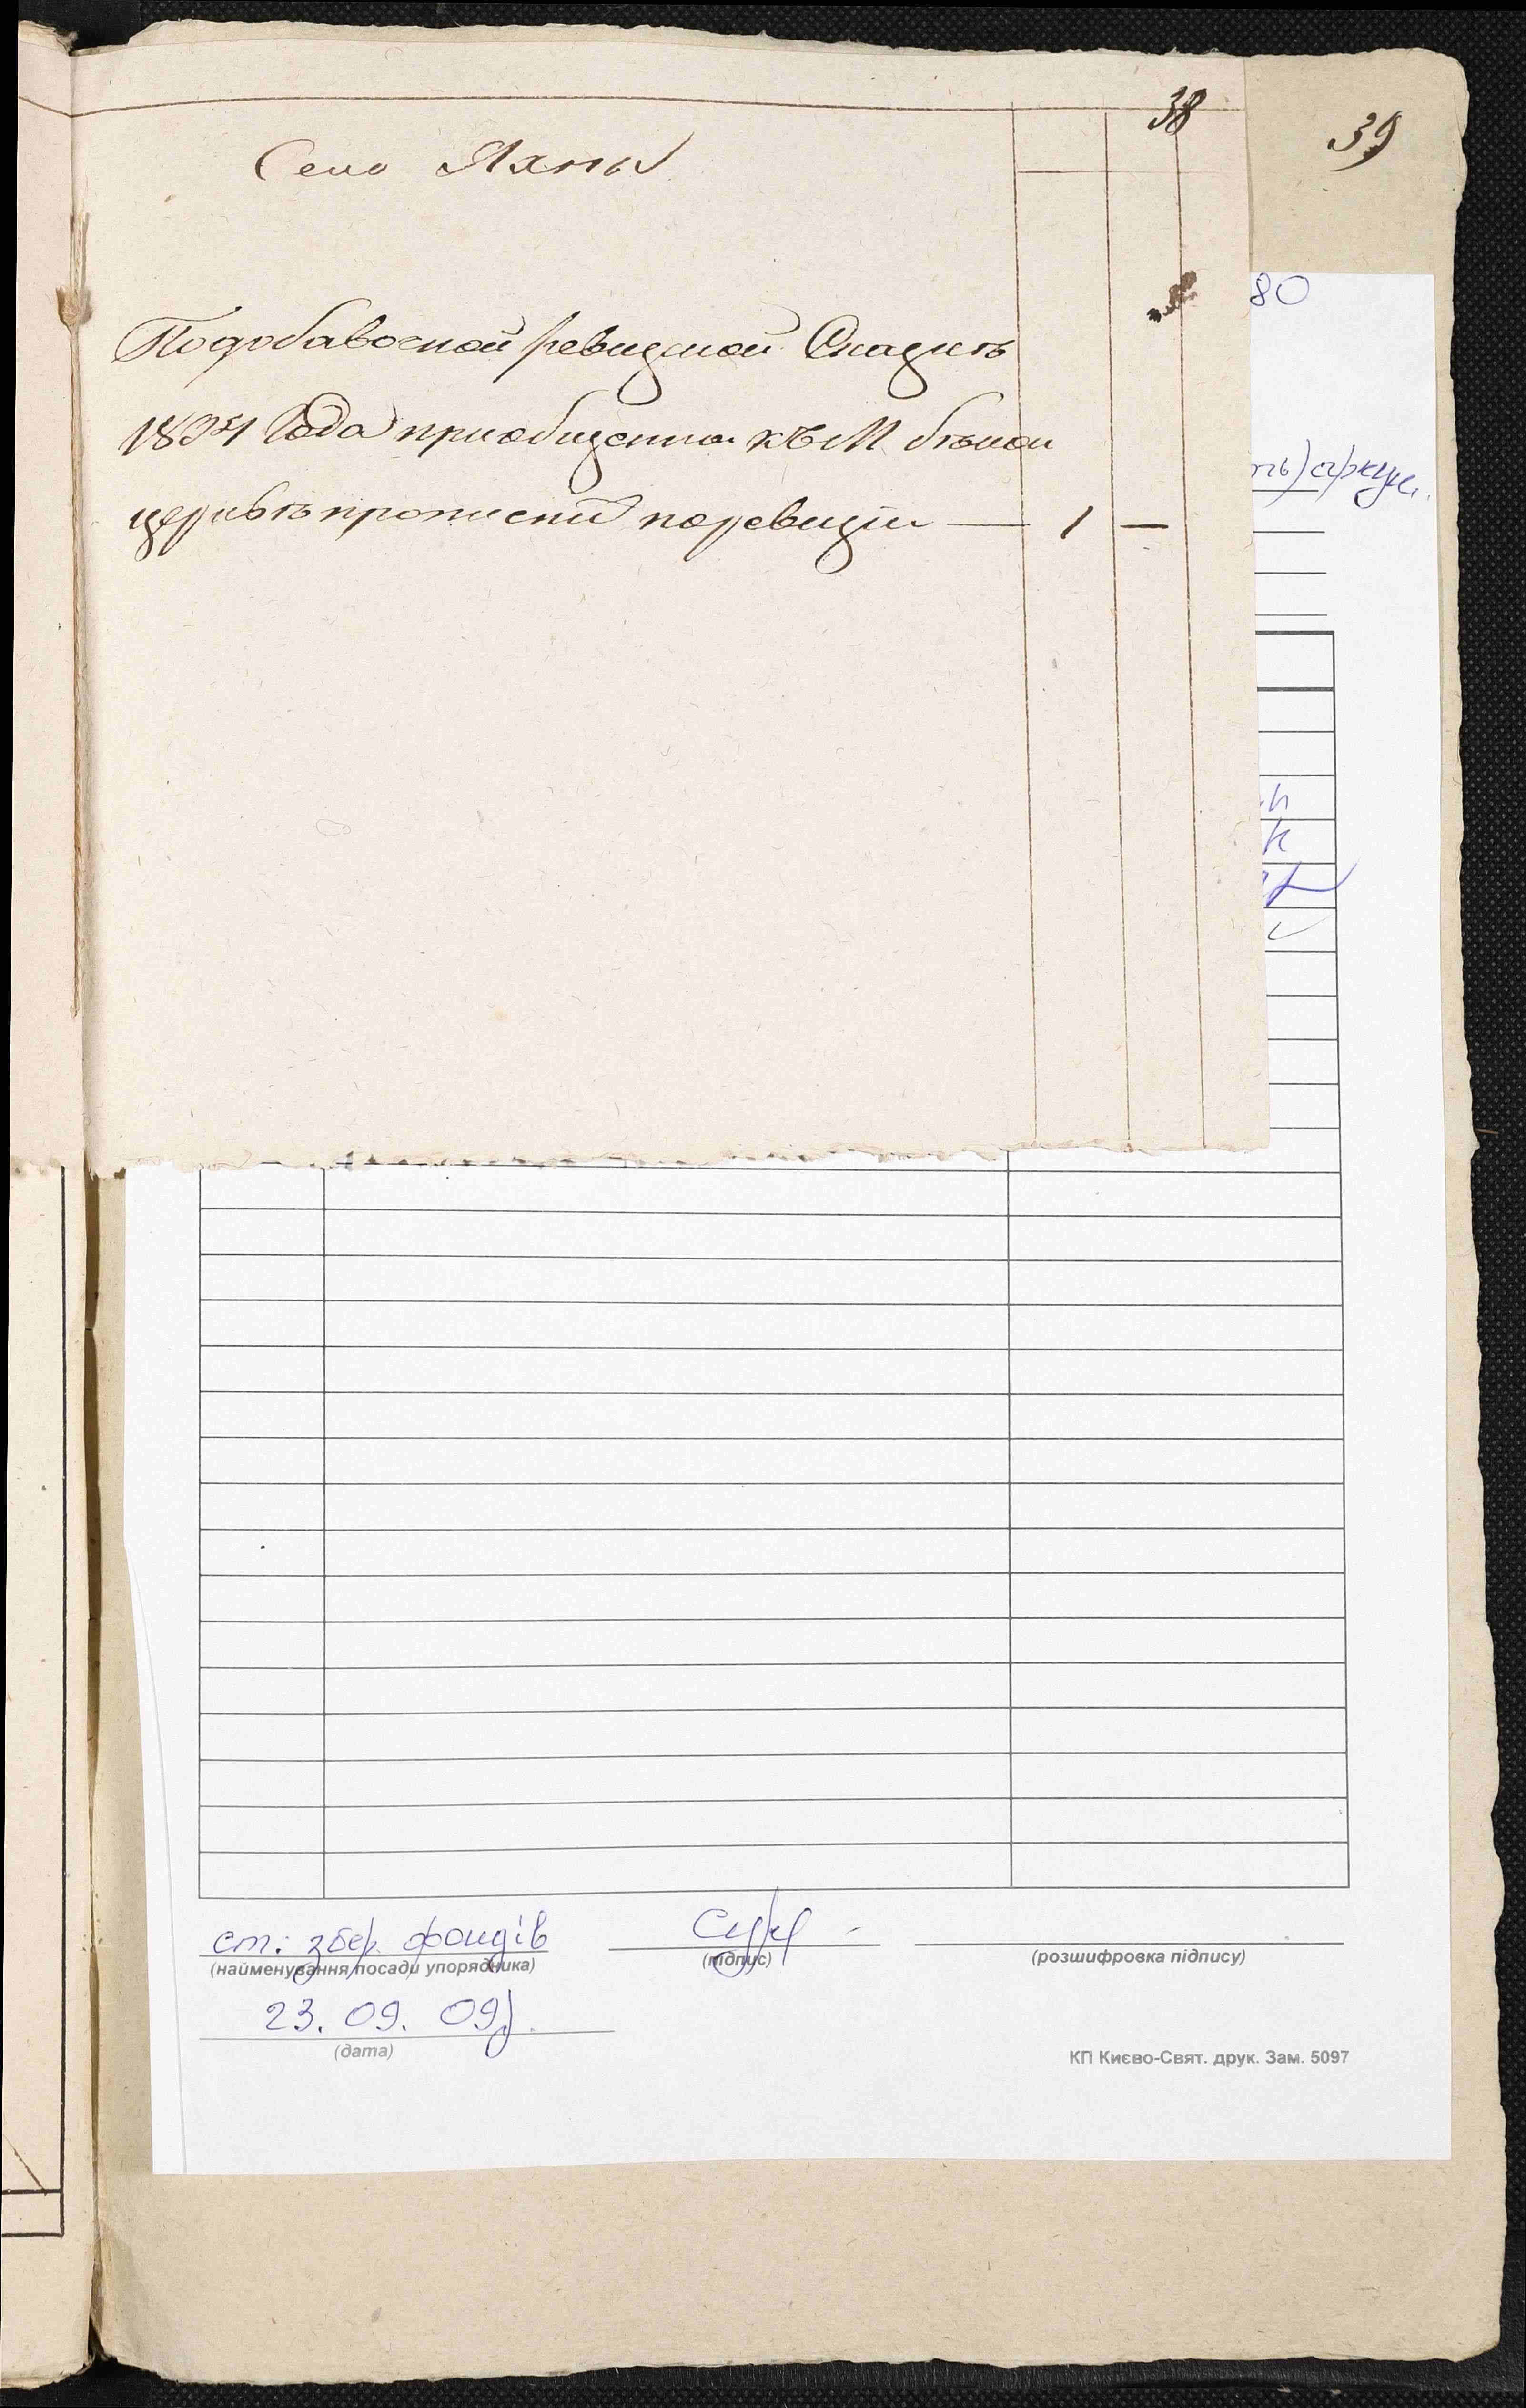 38
39
Село Яхны
80
Подобавочной ревизкой Сказкѣ
Года приобщенной къ М бѣлой
аркуш.
церквѣ прописной по ревизіи — 1 —
ст. збер. фондів
(найменування посади упорядника)
(підпис)
(розшифровка підпису)
23. 09. 09р.
(дата)
КП Києво-Свят. друк. Зам. 5097